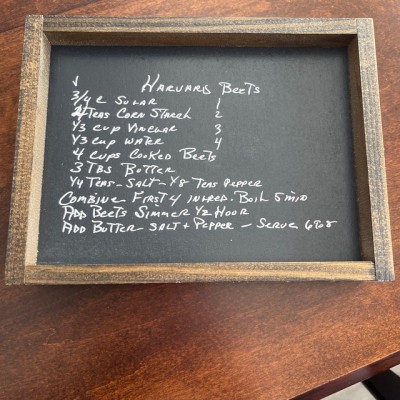 Harvard Beets
3/4 c Sugar 1
2 Teas Corn Starch 2
1/3 cup Vinegar 3
1/3 cup Water 4
4 cups Cooked Beets
3 TBS Butter
1/4 Teas - Salt - 1/8 Teas Pepper
Combine First 4 ingred. Boil 5 min
Add Beets Simmer 1/2 Hour
Add Butter - Salt + Pepper - Serves 6 to 8